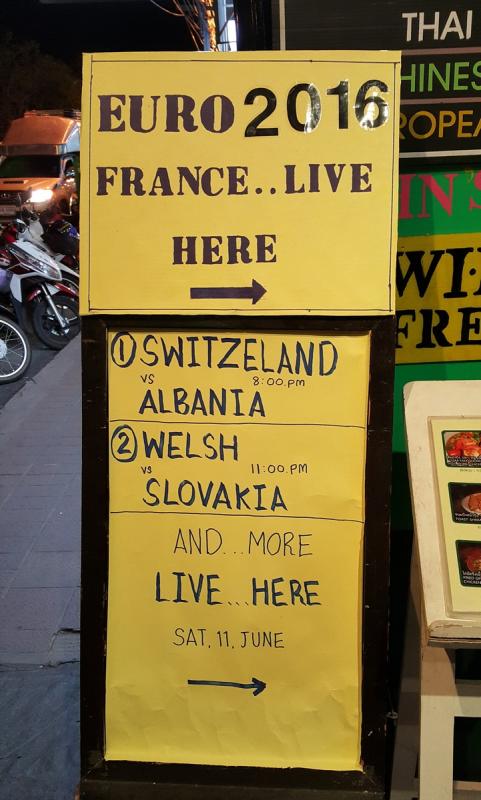 EURO 2016
FRANCE..LIVE
HERE
① SWITZELAND
VS 8:00.PM
ALBANIA
② WELSH
VS 11:00.PM
SLOVAKIA
AND...MORE
LIVE...HERE
SAT, 11, JUNE
THAI